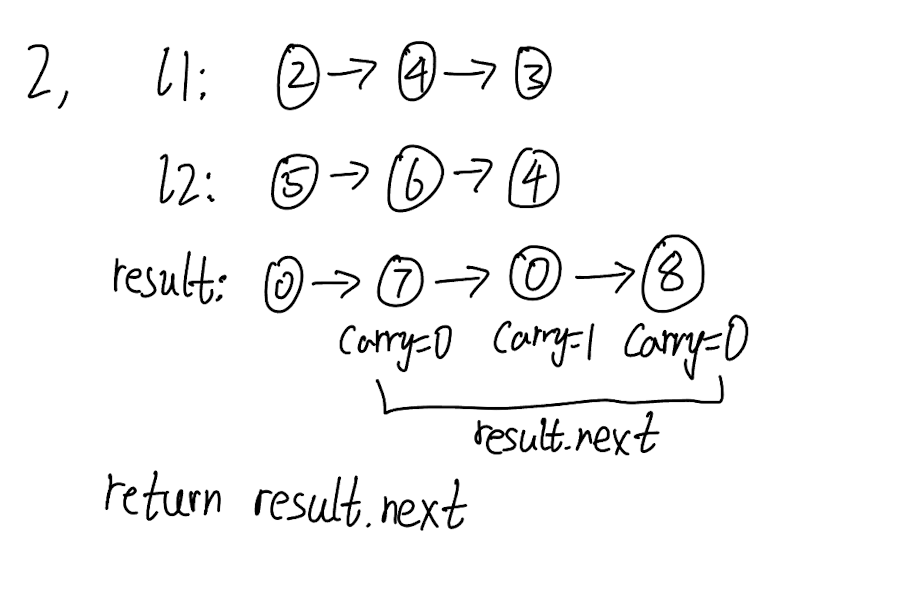 2, l1: 2 → 4 → 3
l2: 5 → 6 → 4
result: 0 → 7 → 0 → 8
Carry=0 Carry=1 Carry=0
result.next
return result.next